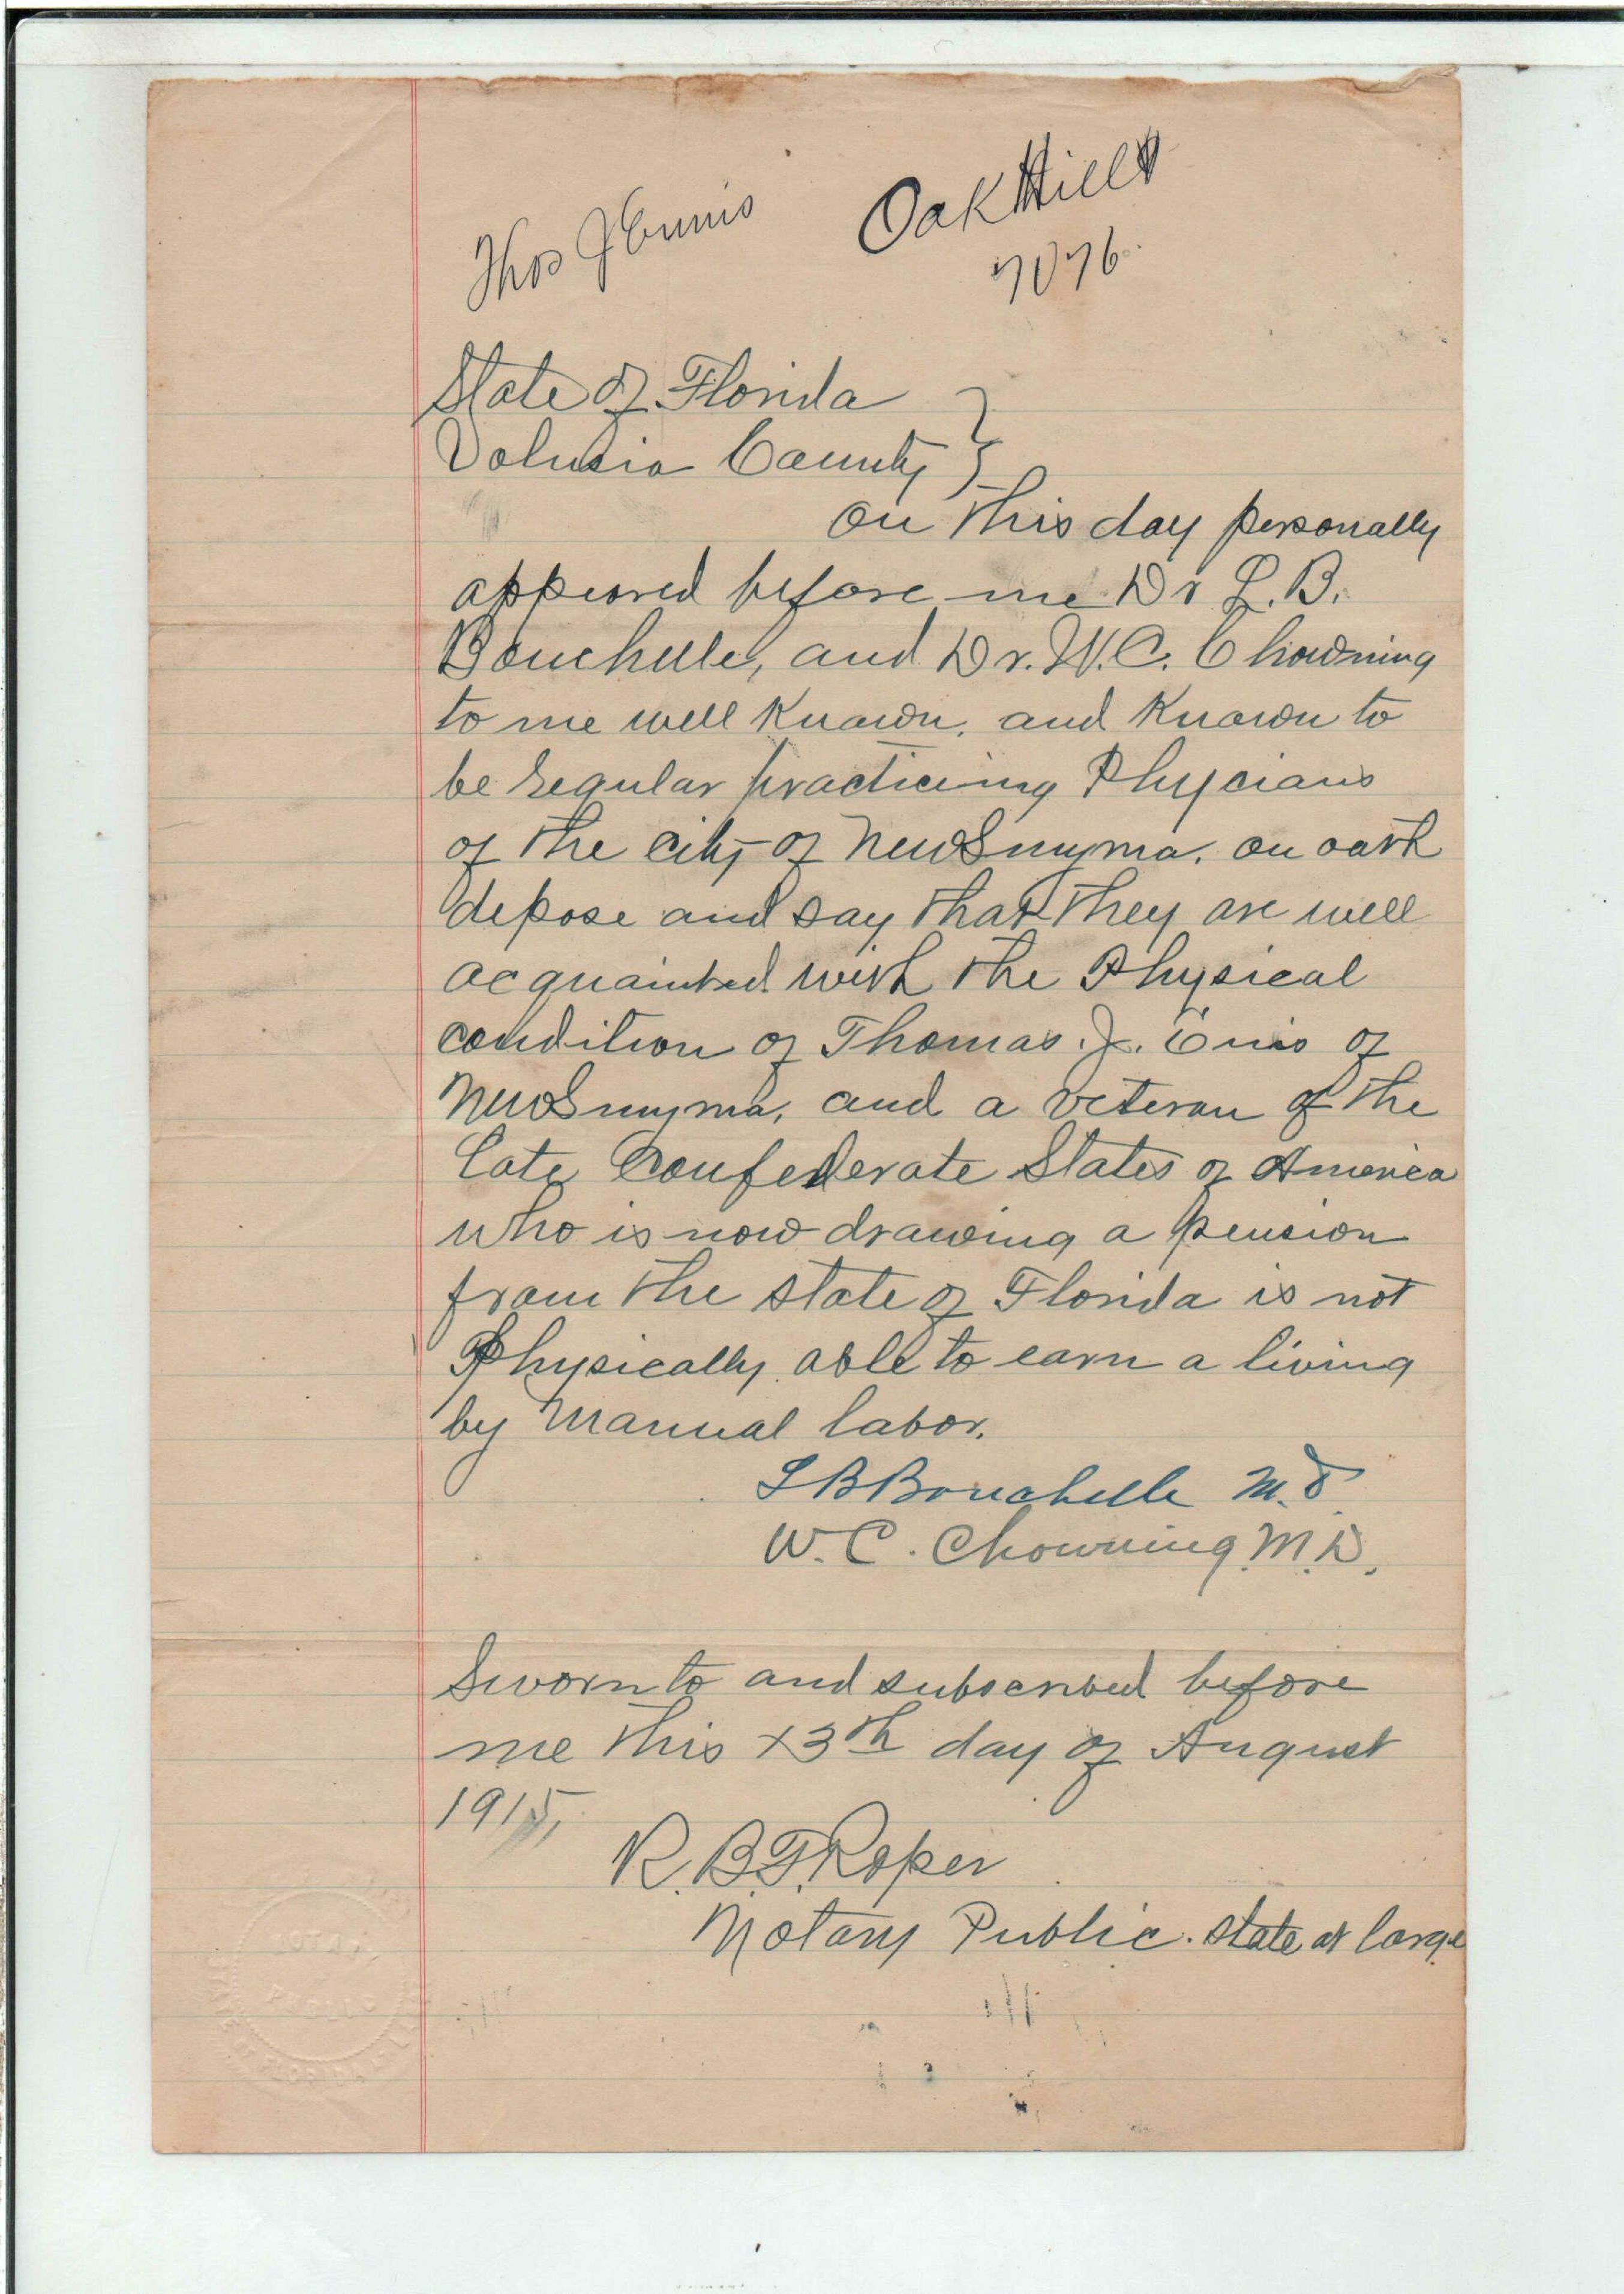 Thos J Ennis Oak Hill
7076
State of Florida
Volusia County
On this day personally
appeared before me Dr L. B.
Bouchelle, and Dr. W. C. Chowning
to me well known, and known to
be regular practicing Phycians
of the city of New Smyrna, on oath
depose and say that they are well
acquainted with the Physical
condition of Thomas. J. Enis of
New Smyrna, and a veteran of the
late Confederate States of America
who is now drawing a pension
from the state of Florida is not
Physically able to earn a living
by manual labor.
L B Bouchelle M.D
W. C. Chowning. M.D.
Sworn to and subscribed before
me this 13th day of August
1915,
R. B. F. Roper
Notary Public. State at large